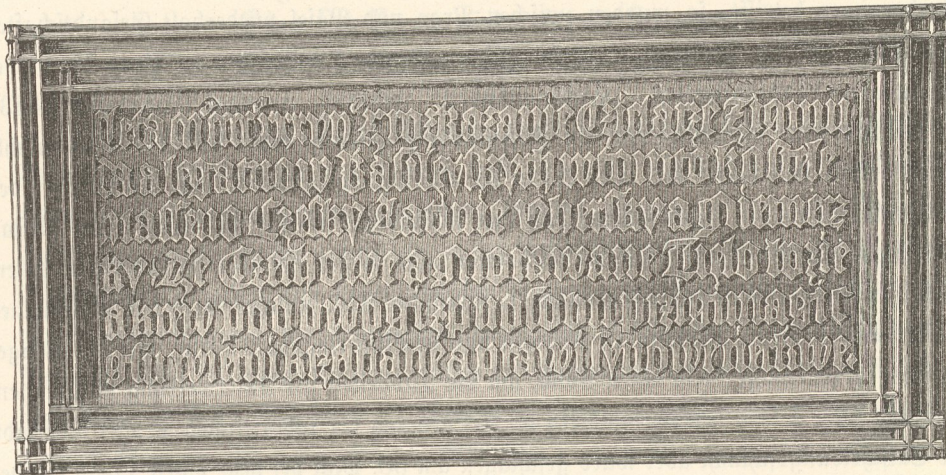 Leta MCCCCXXXVII Z rozkazanie Cziesarze Zigmu
da a legatuow Basileyskych w tomto kostele
wasseno Czesky Latinie Vhersky a Niemecz
ky Ze Czechowe a Morawane Tielo bozie
a krew pod dwogi zpuosobu przigimagic
gsu wierni krzestiane a prawi synowe cierkwe.